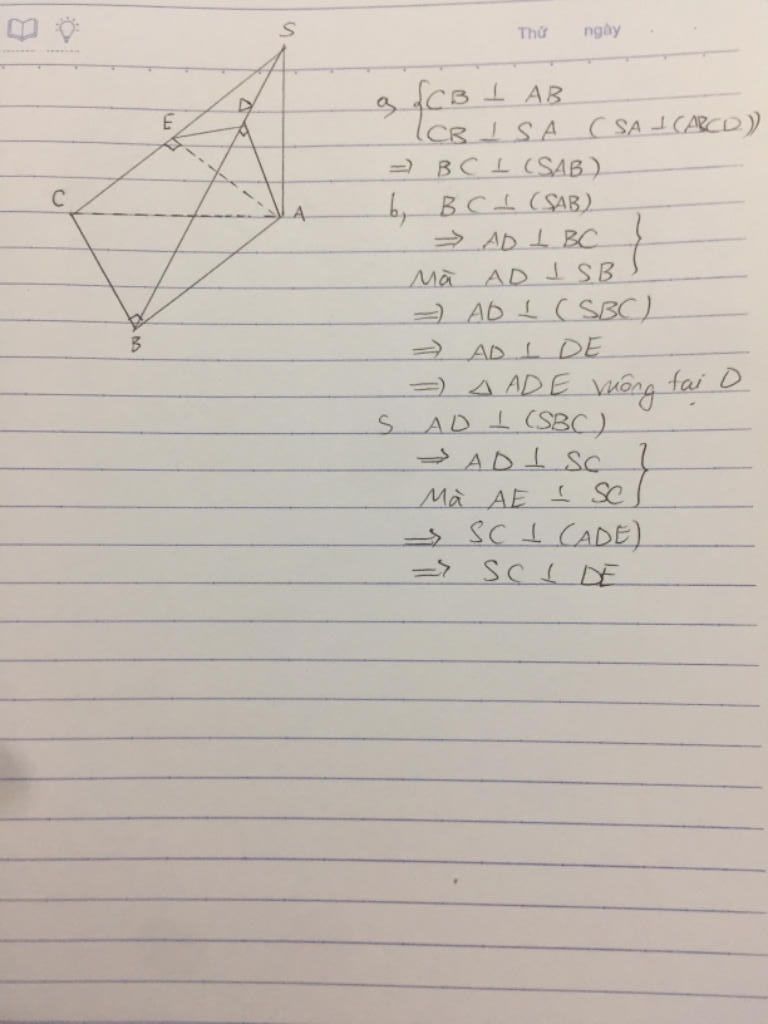 Thứ ngày
S
D
E
C
A
B
a, { CB ⊥ AB
CB ⊥ SA (SA ⊥ (ABCD))
=> BC ⊥ (SAB)
b, BC ⊥ (SAB)
=> AD ⊥ BC }
Mà AD ⊥ SB
=> AD ⊥ (SBC)
=> AD ⊥ DE
=> △ ADE vuông tại D
S AD ⊥ (SBC)
=> AD ⊥ SC }
Mà AE ⊥ SC
=> SC ⊥ (ADE)
=> SC ⊥ DE